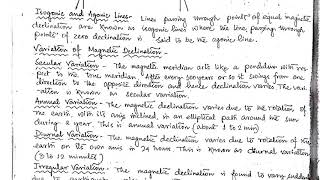 Isogonic and Agonic Lines- Lines passing through points of equal magnetic
declination are known as isogonic lines where the line passing through
points of zero declination is said to be the agonic line.
Variation of Magnetic Declination-
Secular Variation - The magnetic meridian acts like a pendulum with res-
pect to the true meridian. After every 300 years or so it swings from one
direction to the opposite direction and hence declination varies. The vari-
ation is known as secular variation.
Annual Variation - The magnetic declination varies due to the rotation of
the earth, with its axis inclined, in an elliptical path around the sun
during a year. This is annual variation (about 1 to 2 min)
Diurnal Variation - The magnetic declination varies due to rotation of the
earth on its own axis in 24 hours. This is known as diurnal variation
(3 to 12 minutes)
Irregular Variation - The magnetic declination is found to vary sudden